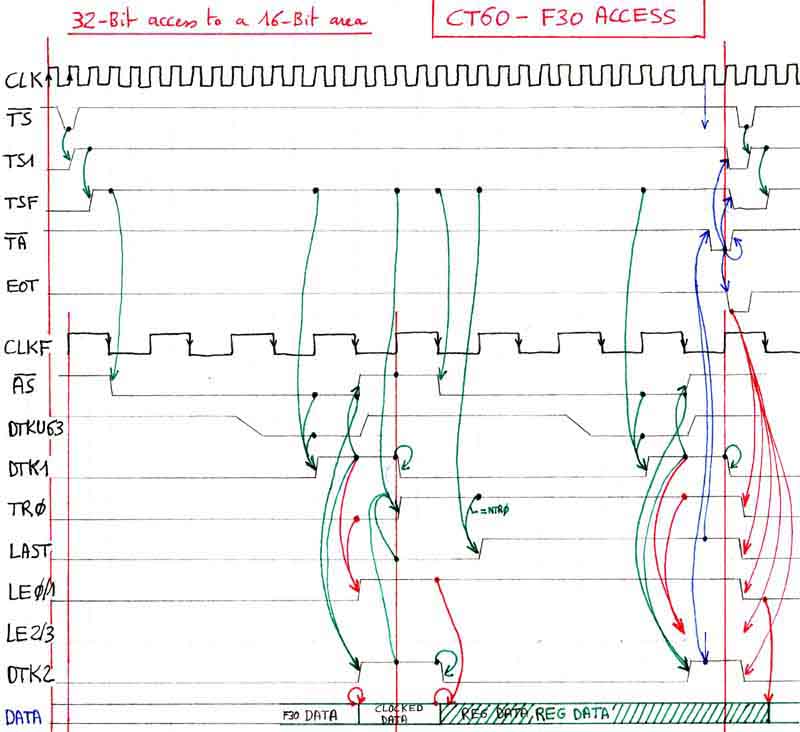 32-Bit access to a 16-Bit area
CT60 - F30 ACCESS
CLK
TS
TS1
TSF
TA
EOT
CLKF
AS
DTKU63
DTK1
TRØ
L=NTRØ
LAST
LEØ/1
LE2/3
DTK2
DATA
F30 DATA
CLOCKED
DATA
REG DATA, REG DATA